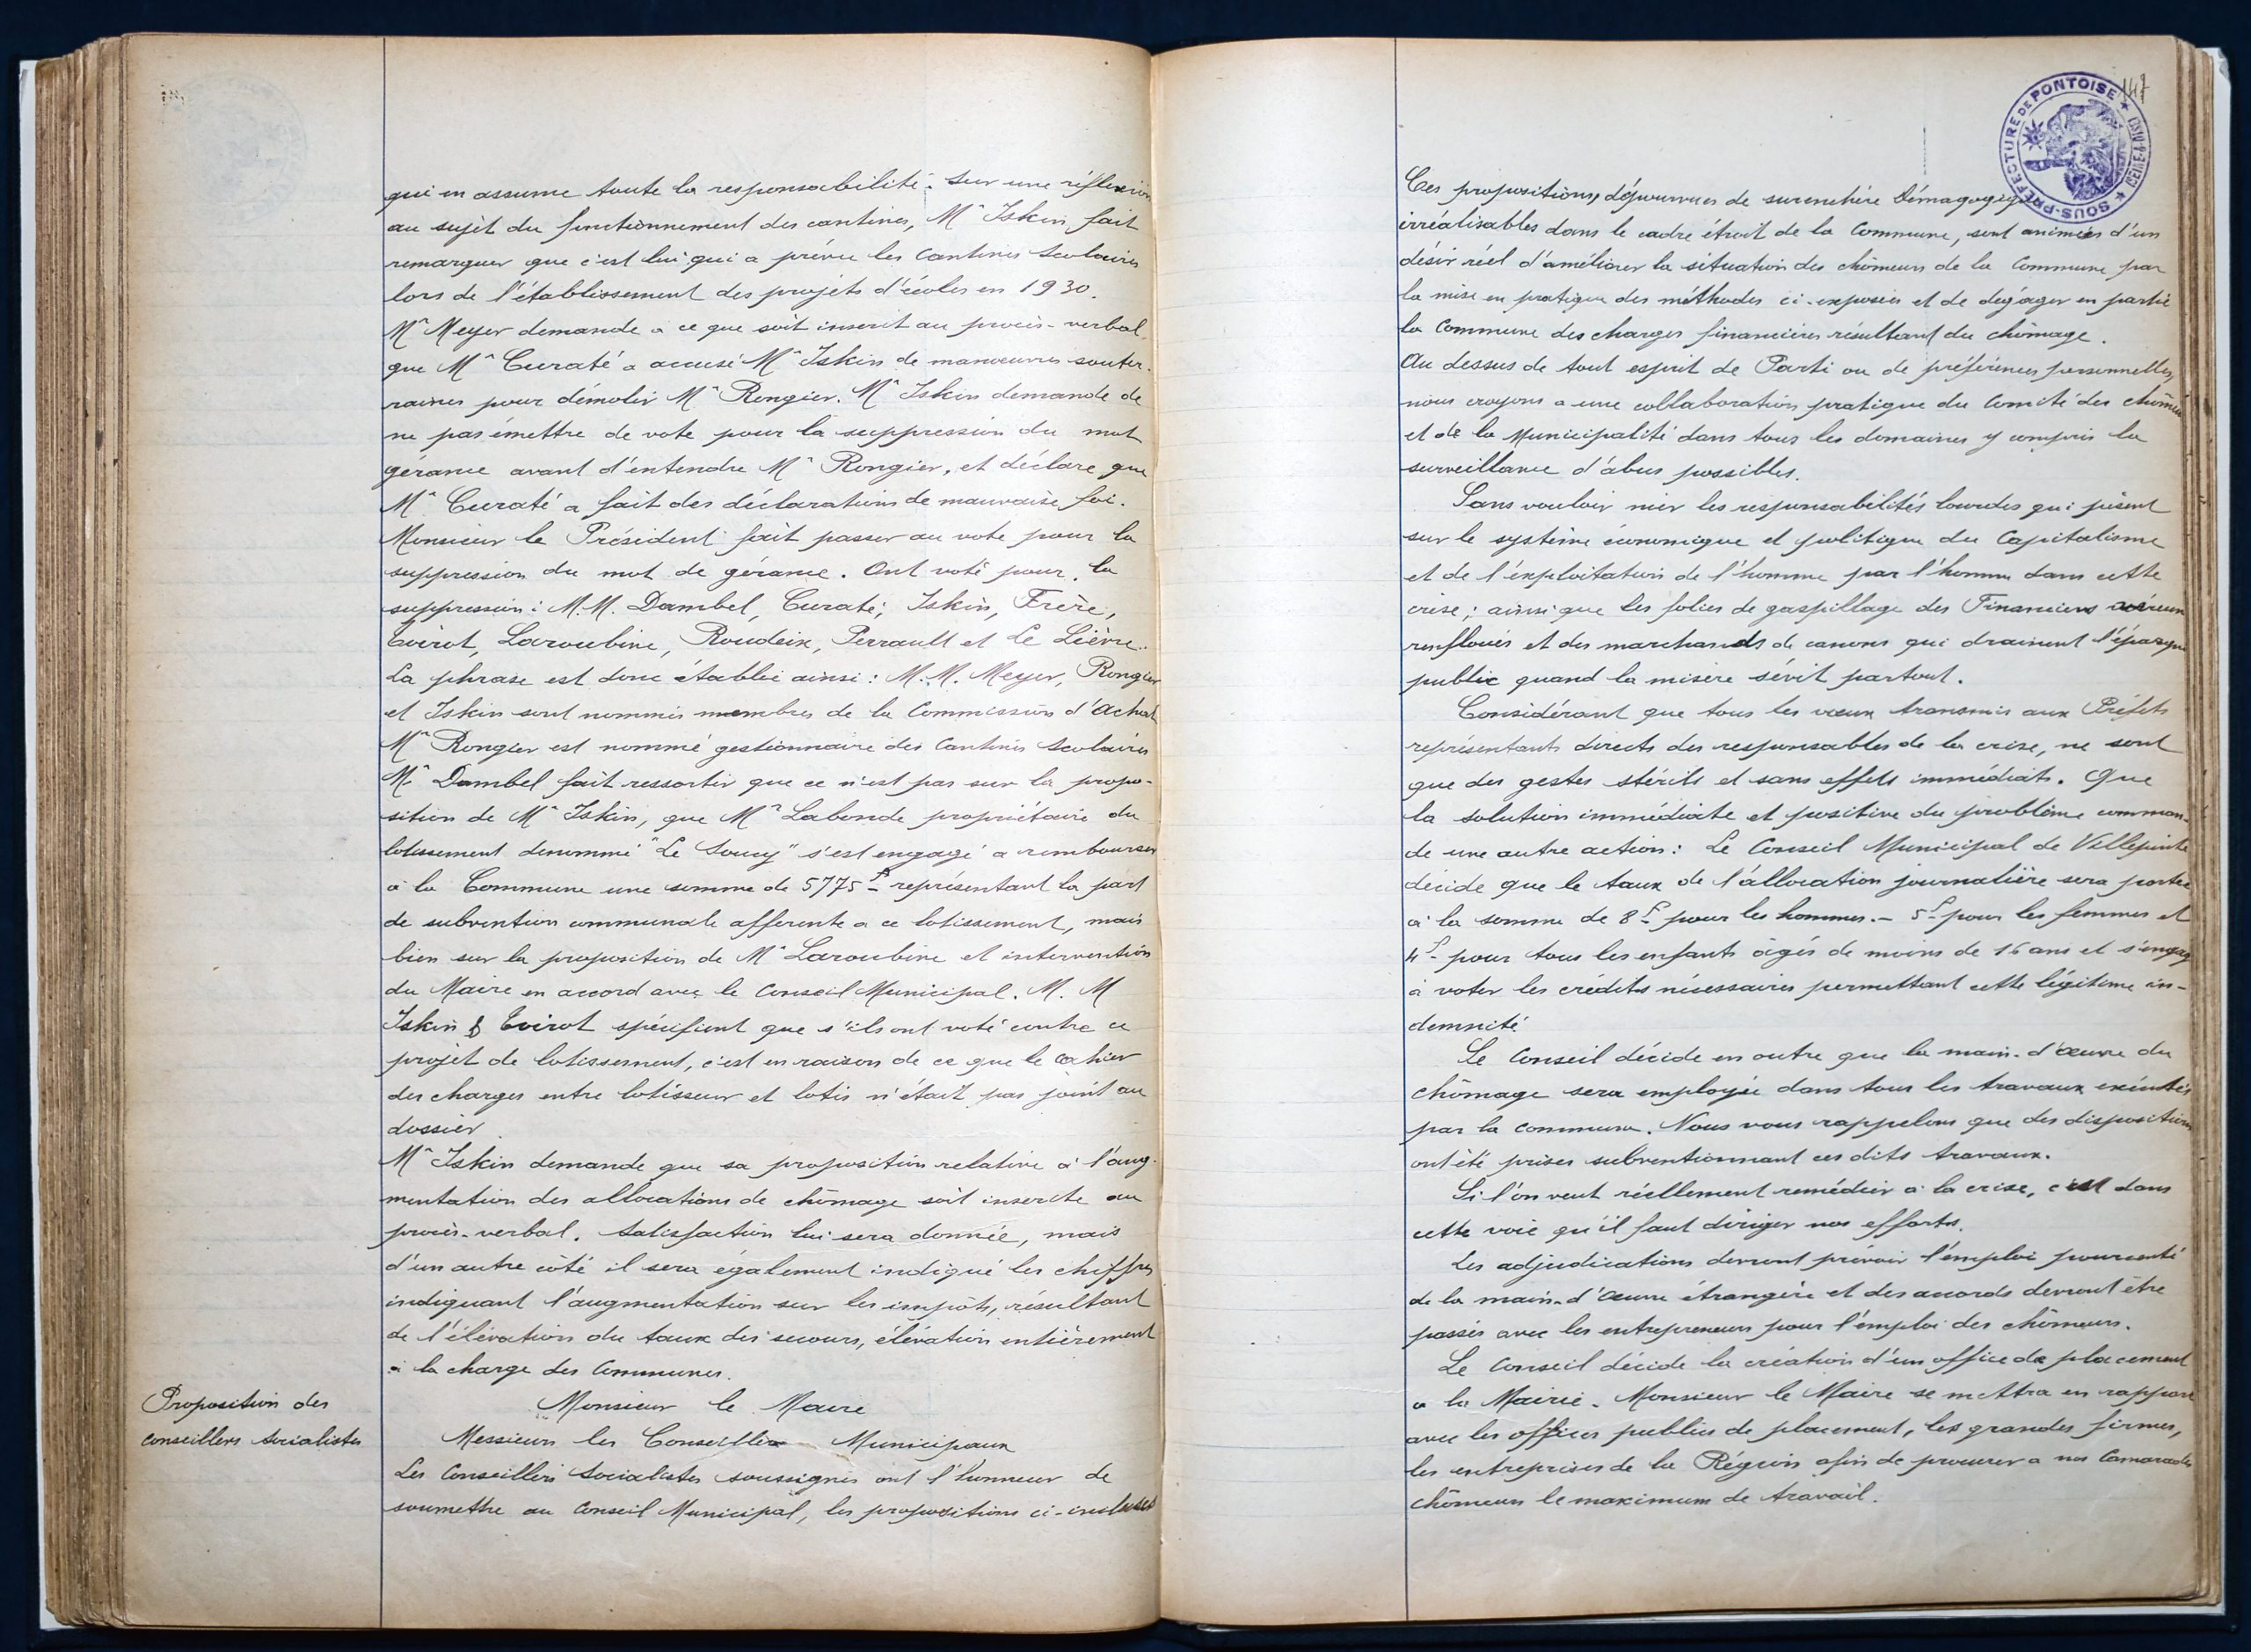 qui en assume toute la responsabilité. Sur une réflexion
au sujet du fonctionnement des cantines, Mr Iskin fait
remarquer que c'est lui qui a prévu les Cantines Scolaires
lors de l'établissement des projets d'écoles en 1930.
Mr Meyer demande à ce que soit inscrit au procès-verbal
que Mr Curaté a accusé Mr Iskin de manœuvres souter-
raines pour démolir Mr Rongier. Mr Iskin demande de
ne pas émettre de vote pour la suppression du mot
gérance avant d'entendre Mr Rongier, et déclare que
Mr Curaté a fait des déclarations de mauvaise foi.
Monsieur le Président fait passer au vote pour la
suppression du mot de gérance. Ont voté pour la
suppression : M.M. Dambel, Curaté, Iskin, Frère,
Evirot, Laroubine, Roudeix, Perrault et Le Lièvre.
La phrase est donc établie ainsi : M.M. Meyer, Rongier
et Iskin sont nommés membres de la Commission d'Achat
Mr Rongier est nommé gestionnaire des Cantines Scolaires
Mr Dambel fait ressortir que ce n'est pas sur la propo-
sition de Mr Iskin, que Mr Labonde propriétaire du
lotissement denommé "Le Soucy" s'est engagé a rembourser
à la Commune une somme de 5775 f- représentant la part
de subvention communale afferente a ce lotissement, mais
bien sur la proposition de Mr Laroubine et intervention
du Maire en accord avec le Conseil Municipal. M. M
Iskin & Evirot spécifient que s'ils ont voté contre ce
projet de lotissement, c'est en raison de ce que le cahier
des charges entre lotisseur et lotis n'était pas joint au
dossier
Mr Iskin demande que sa proposition relative à l'aug-
mentation des allocations de chômage soit inscrite au
procès-verbal. Satisfaction lui sera donnée, mais
d'un autre côté il sera également indiqué les chiffres
indiquant l'augmentation sur les impôts, résultant
de l'élévation du taux des secours, élévation entièrement
à la charge des Communes.
Proposition des
conseillers socialistes
Monsieur le Maire
Messieurs les Conseillers Municipaux
Les Conseillers Socialistes soussignés ont l'honneur de
soumettre au Conseil Municipal, les propositions ci-incluses
147
SOUS-PRÉFECTURE DE PONTOISE
Ces propositions, dépourvues de surenchère Démagogique
irréalisables dans le cadre étroit de la Commune, sont animées d'un
désir réel d'améliorer la situation des chômeurs de la Commune par
la mise en pratique des méthodes ci-exposées et de dégager en partie
la Commune des charges financières résultant du chômage.
Au dessus de tout esprit de Parti ou de préférences personnelles,
nous croyons a une collaboration pratique du Comité des chômeurs
et de la Municipalité dans tous les domaines y compris la
surveillance d'abus possibles.
Sans vouloir nier les responsabilités lourdes qui pèsent
sur le système économique et politique du Capitalisme
et de l'exploitation de l'homme par l'homme dans cette
crise ; ainsi que les folies de gaspillage des Financiers véreux
renfloués et des marchands de canons qui drainent l'épargne
public quand la misère sévit partout.
Considérant que tous les vœux transmis aux Préfets
représentants directs des responsables de la crise, ne sont
que des gestes stérils et sans effets immédiats. Que
la solution immédiate et positive du problème comman-
de une autre action : Le Conseil Municipal de Villepinte
décide que le taux de l'allocation journalière sera portée
à la somme de 8 f- pour les hommes. - 5 f- pour les femmes et
4 f- pour tous les enfants âgés de moins de 16 ans et s'engage
à voter les crédits nécessaires permettant cette légitime in-
demnité
Le Conseil décide en outre que la main-d'œuvre du
chômage sera employée dans tous les travaux exécutés
par la commune. Nous vous rappelons que des dispositions
ont été prises subventionnant ces dits travaux.
Si l'on veut réellement remédier à la crise, c'est dans
cette voie qu'il faut diriger nos efforts.
Les adjudications devront prévoir l'emploi pourcenté
de la main-d'œuvre étrangère et des accords devront être
passés avec les entrepreneurs pour l'emploi des chômeurs.
Le Conseil décide la création d'un office de placement
a la Mairie. Monsieur le Maire se mettra en rapport
avec les offices publics de placement, les grandes firmes,
les entreprises de la Région afin de procurer a nos Camarades
chômeurs le maximum de travail.